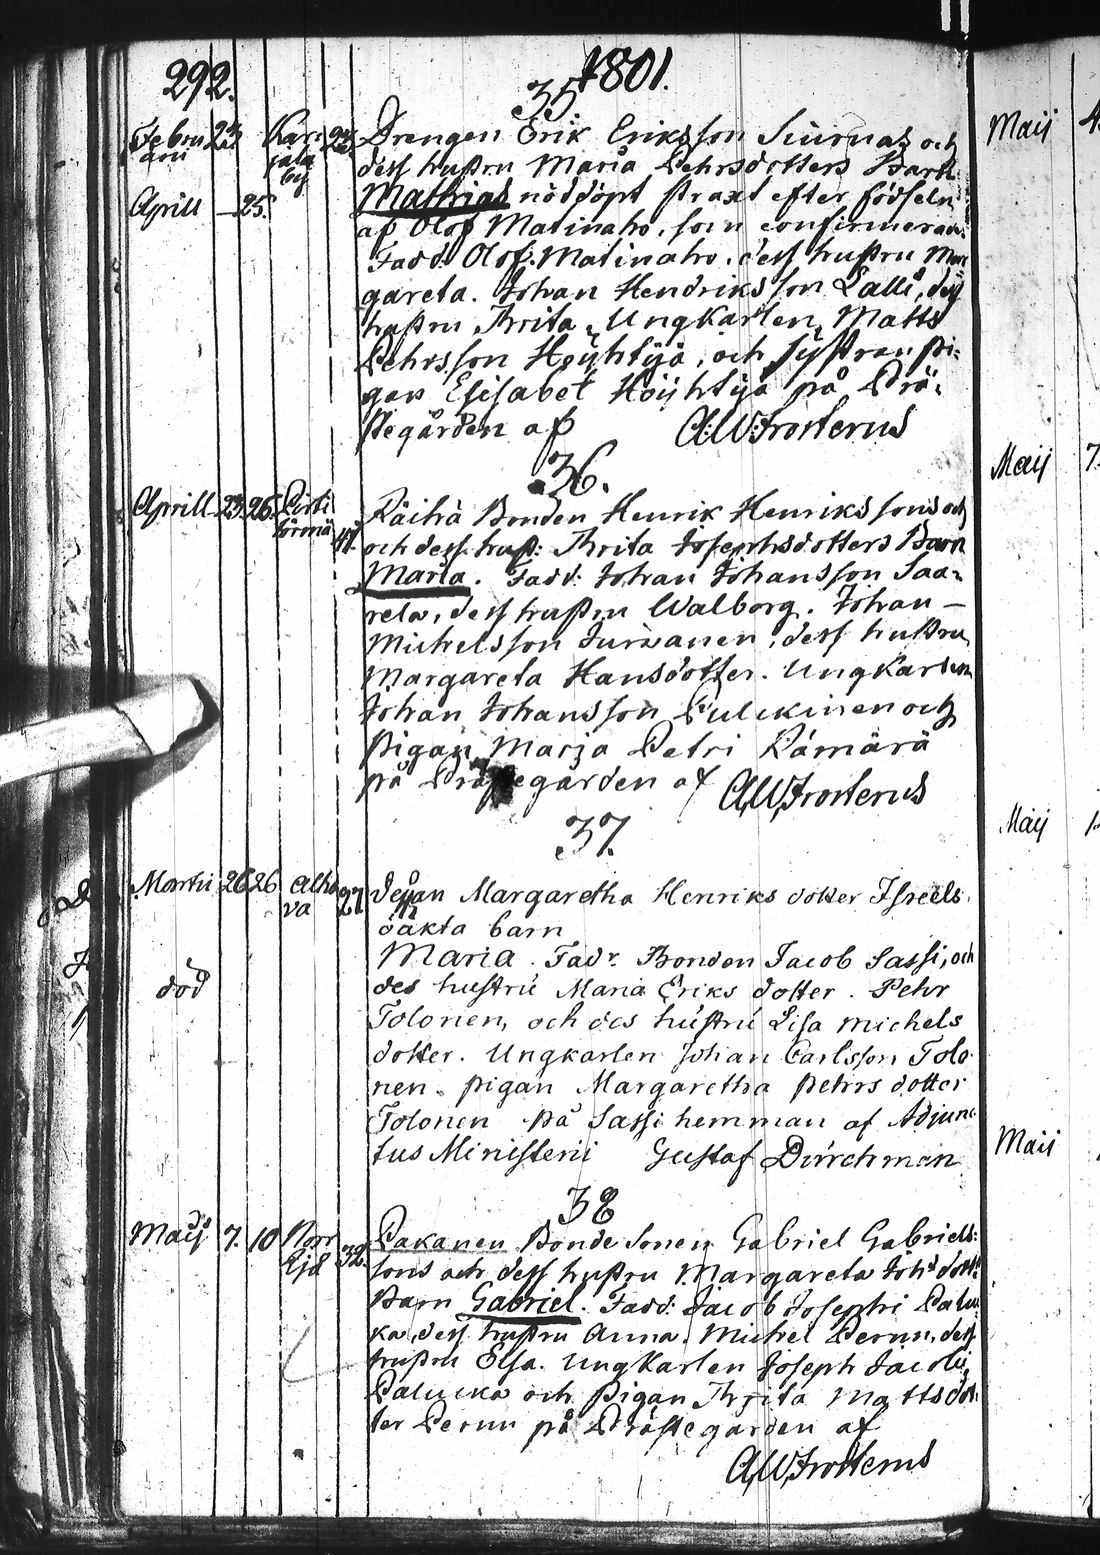 292.
1801.
35
Februarii 24 Karjala by
Aprill — 25.
Drengen Erik Eriksson Siurnas och
dess hustru Maria Pehrsdotters Barn
Mathias nöddöpt straxt efter födseln
af Olof Matinaho, som confirmerad.
Fadd: Olof: Matinaho, dess hustru Mar
gareta. Johan Hendriksson Lalli, dess
hustru Brita, Ungkarlen Matts
Pehrsson Höyhtyä, och systran Pi-
gan Elisabet Höyhtyä på Prä-
stegården af A:W:Frosterus
36.
Aprill 23. 26. 41.
Räihä Bonden Henrik Henrikssons och
och dess hust: Brita Josephsdotters Barn
Maria. Fadd: Johan Johansson Saa-
rela, dess hustru Walborg. Johan —
Michelsson Jurvanen, dess hustru
Margareta Hansdotter. Ungkarlen
Johan Johansson Pulckinen och
Pigan Marja Petri Kämärä
på Prästegården af A,W,Frosterus
37.
Martii 26 26 Alha
va 27
död
Margaretha Henriks dotter Isreels
oäkta barn
Maria. Fadr. Bonden Jacob Sassi, och
des hustru Maria Eriks dotter. Pehr
Tolonen, och des hustru Lisa Michels
dotter. Ungkarlen Johan Carlsson Tolo
nen. pigan Margaretha Pehrs dotter
Tolonen På Sassi hemman af Adjunc
tus Ministerii Gustaf Dürchman
38
Maij 7. 10 Norr 32.
Pakanen Bonde Sonen Gabriel Gabriels-
sons och dess hustru Margareta Joh:s dott:
Barn Gabriel. Fadd: Jacob Josephi Paluc-
ka, dess hustru Anna. Michel Perun, dess
hustru Elsa. Ungkarlen Joseph Jacobi
Palucka och Pigan Brita Mattsdot-
ter Perun på Prästegården af
A,W,Frosterus
Maij 4.
Maij 7.
Maij
Maij